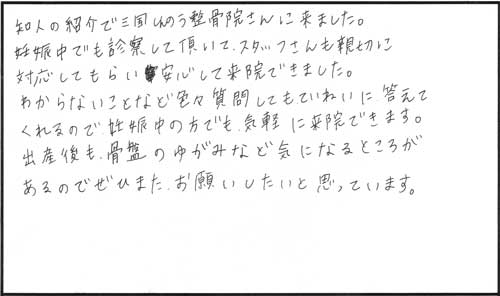 知人の紹介で三国しんのう整骨院さんに来ました。
妊娠中でも診察して頂いて、スタッフさんも親切に
対応してもらい安心して来院できました。
わからないことなど色々質問してもていねいに答えて
くれるので妊娠中の方でも、気軽に来院できます。
出産後も、骨盤のゆがみなど気になるところが
あるのでぜひまた、お願いしたいと思っています。